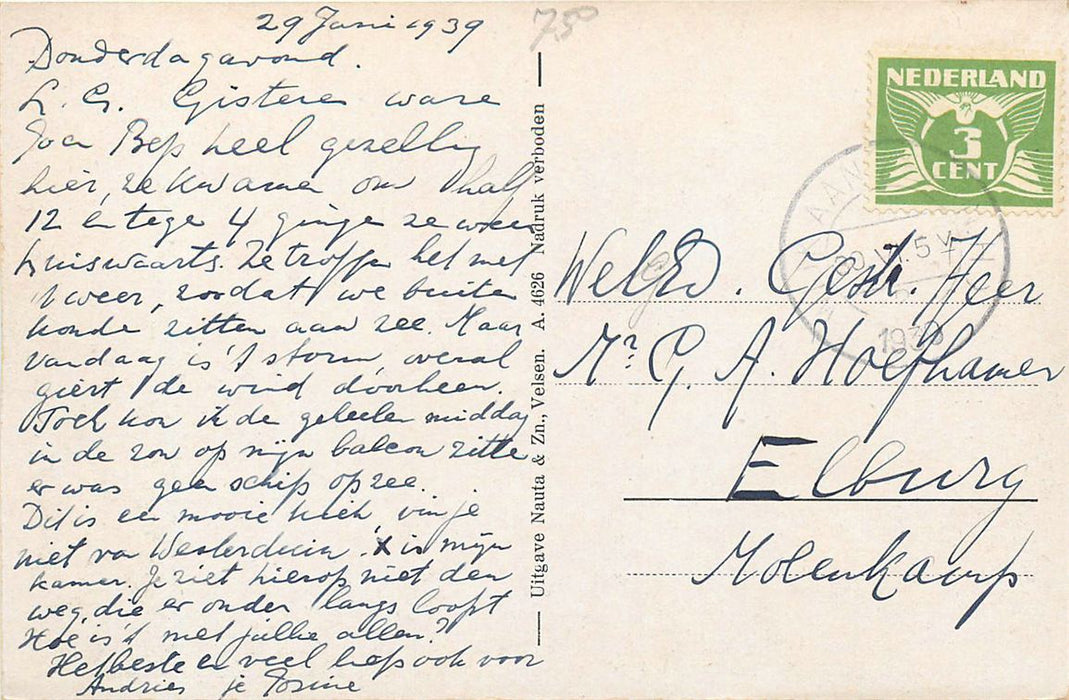 29 Juni 1939
75
Donderdagavond.
L. G. Gistere ware
Joa Bep heel gezellig
hier, ze kwame om half
12 en tege 4 ginge ze weer
huiswaarts. Ze troffe het met
't weer, zoodat we buite
konde zitten aan zee. Maar
vandaag is 't storm, overal
giert de wind doorheen.
Toch kon ik de geheelen middag
in de zon op mijn balcon zitte
er was geen schip op zee.
Dit is een mooie kiek, vin je
niet van Westerduin. X is mijn
kamer. Je ziet hierop niet den
weg, die er onder langs loopt
Hoe is 't met jullie allen?
Het beste en veel liefs ook voor
Andries je Josine
Uitgave Nauta & Zn., Velsen. A. 4626 Nadruk verboden
NEDERLAND
3
CENT
30.VI.5.V
1939
WelEd. Gestr. Heer
Mr. G. A. Hoefhamer
Elburg
Molenkamp